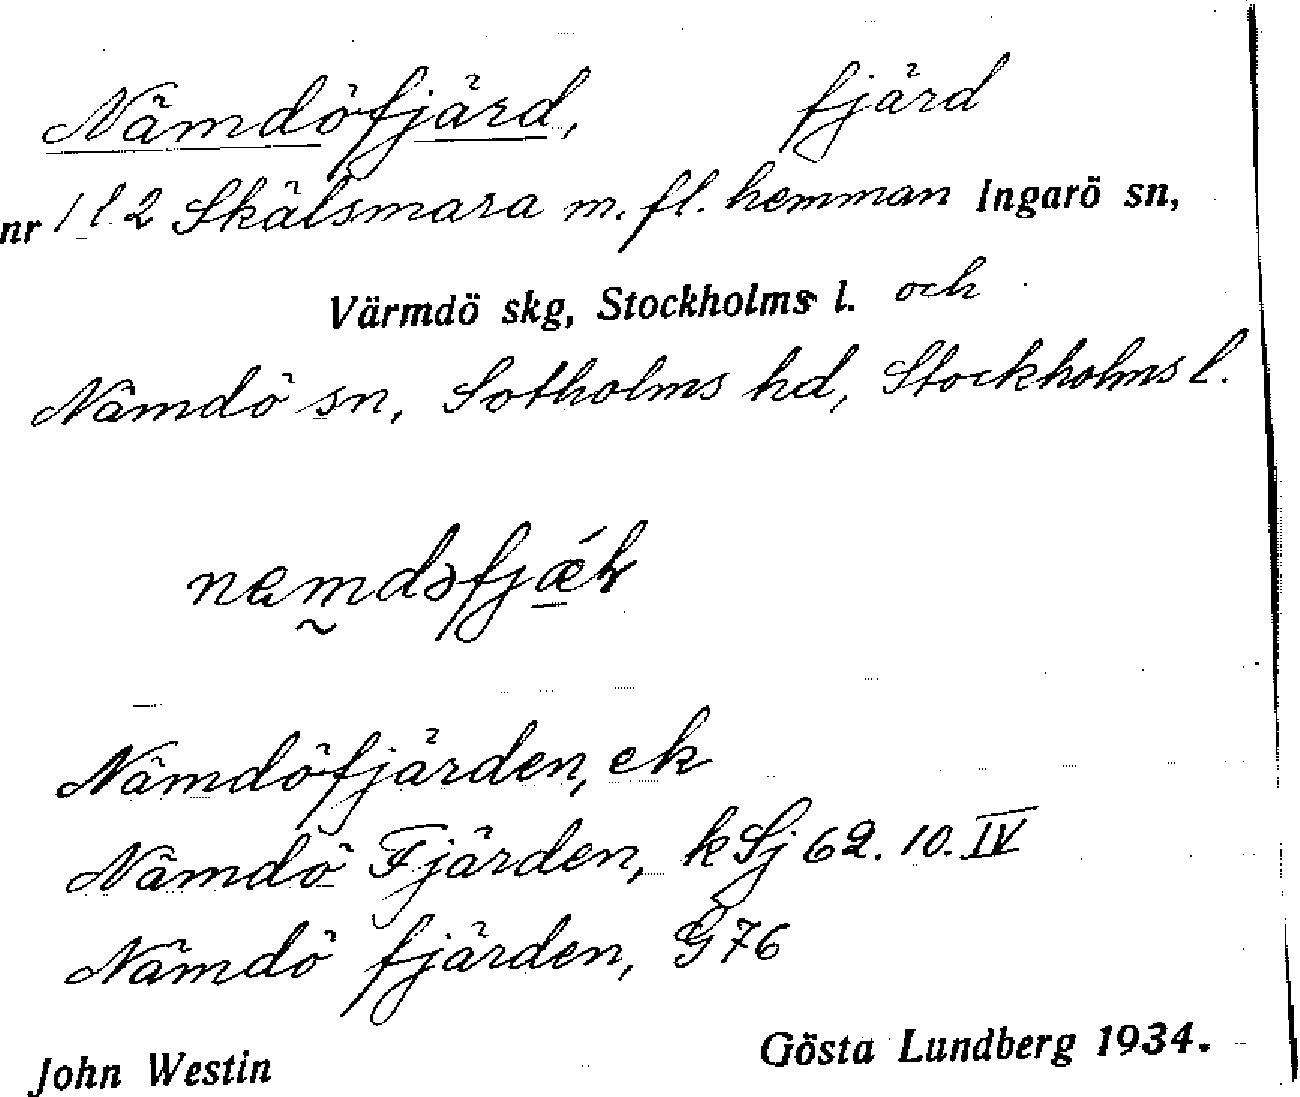 Nämdöfjärd, fjärd
nr 1 l. 2 Skälsmara m. fl. hemman Ingarö sn,
Värmdö skg, Stockholms l. och
Nämdö sn, Sotholms hd, Stockholms l.
Nämdöfjärden, ek
Nämdö Fjärden, kSj 62. 10. IV
Nämdö fjärden, G 76
John Westin Gösta Lundberg 1934.